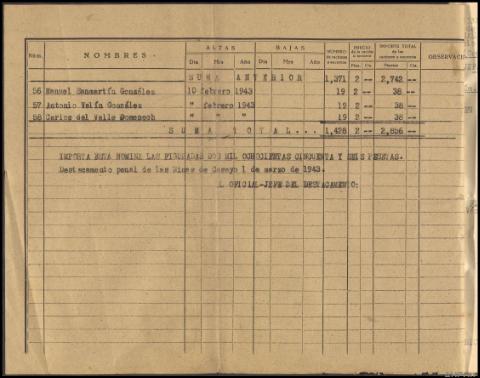 Núm. NOMBRES ALTAS BAJAS NÚMERO de raciones a socorros PRECIO de la ración o socorro IMPORTE TOTAL de las raciones o socorros OBSERVACIO
Día Mes Año Día Mes Año Ptas. Cts. Pesetas Cts.
SUMA ANTERIOR 1,371 2 -- 2,742 --
56 Manuel Sanmartín González 10 febrero 1943 19 2 -- 38 --
57 Antonio González " febrero 1943 19 2 -- 38 --
58 Carlos del Valle Domenech " " " 19 2 -- 38 --
SUMA TOTAL... 1,428 2 -- 2,856 --
IMPORTA ESTA NOMINA LAS FIGURADAS DOS MIL OCHOCIENTAS CINCUENTA Y SEIS PESETAS.
Destacamento penal de las Minas de Casayo 1 de marzo de 1943.
L OFICIAL-JEFE DEL DESTACAMENTO: